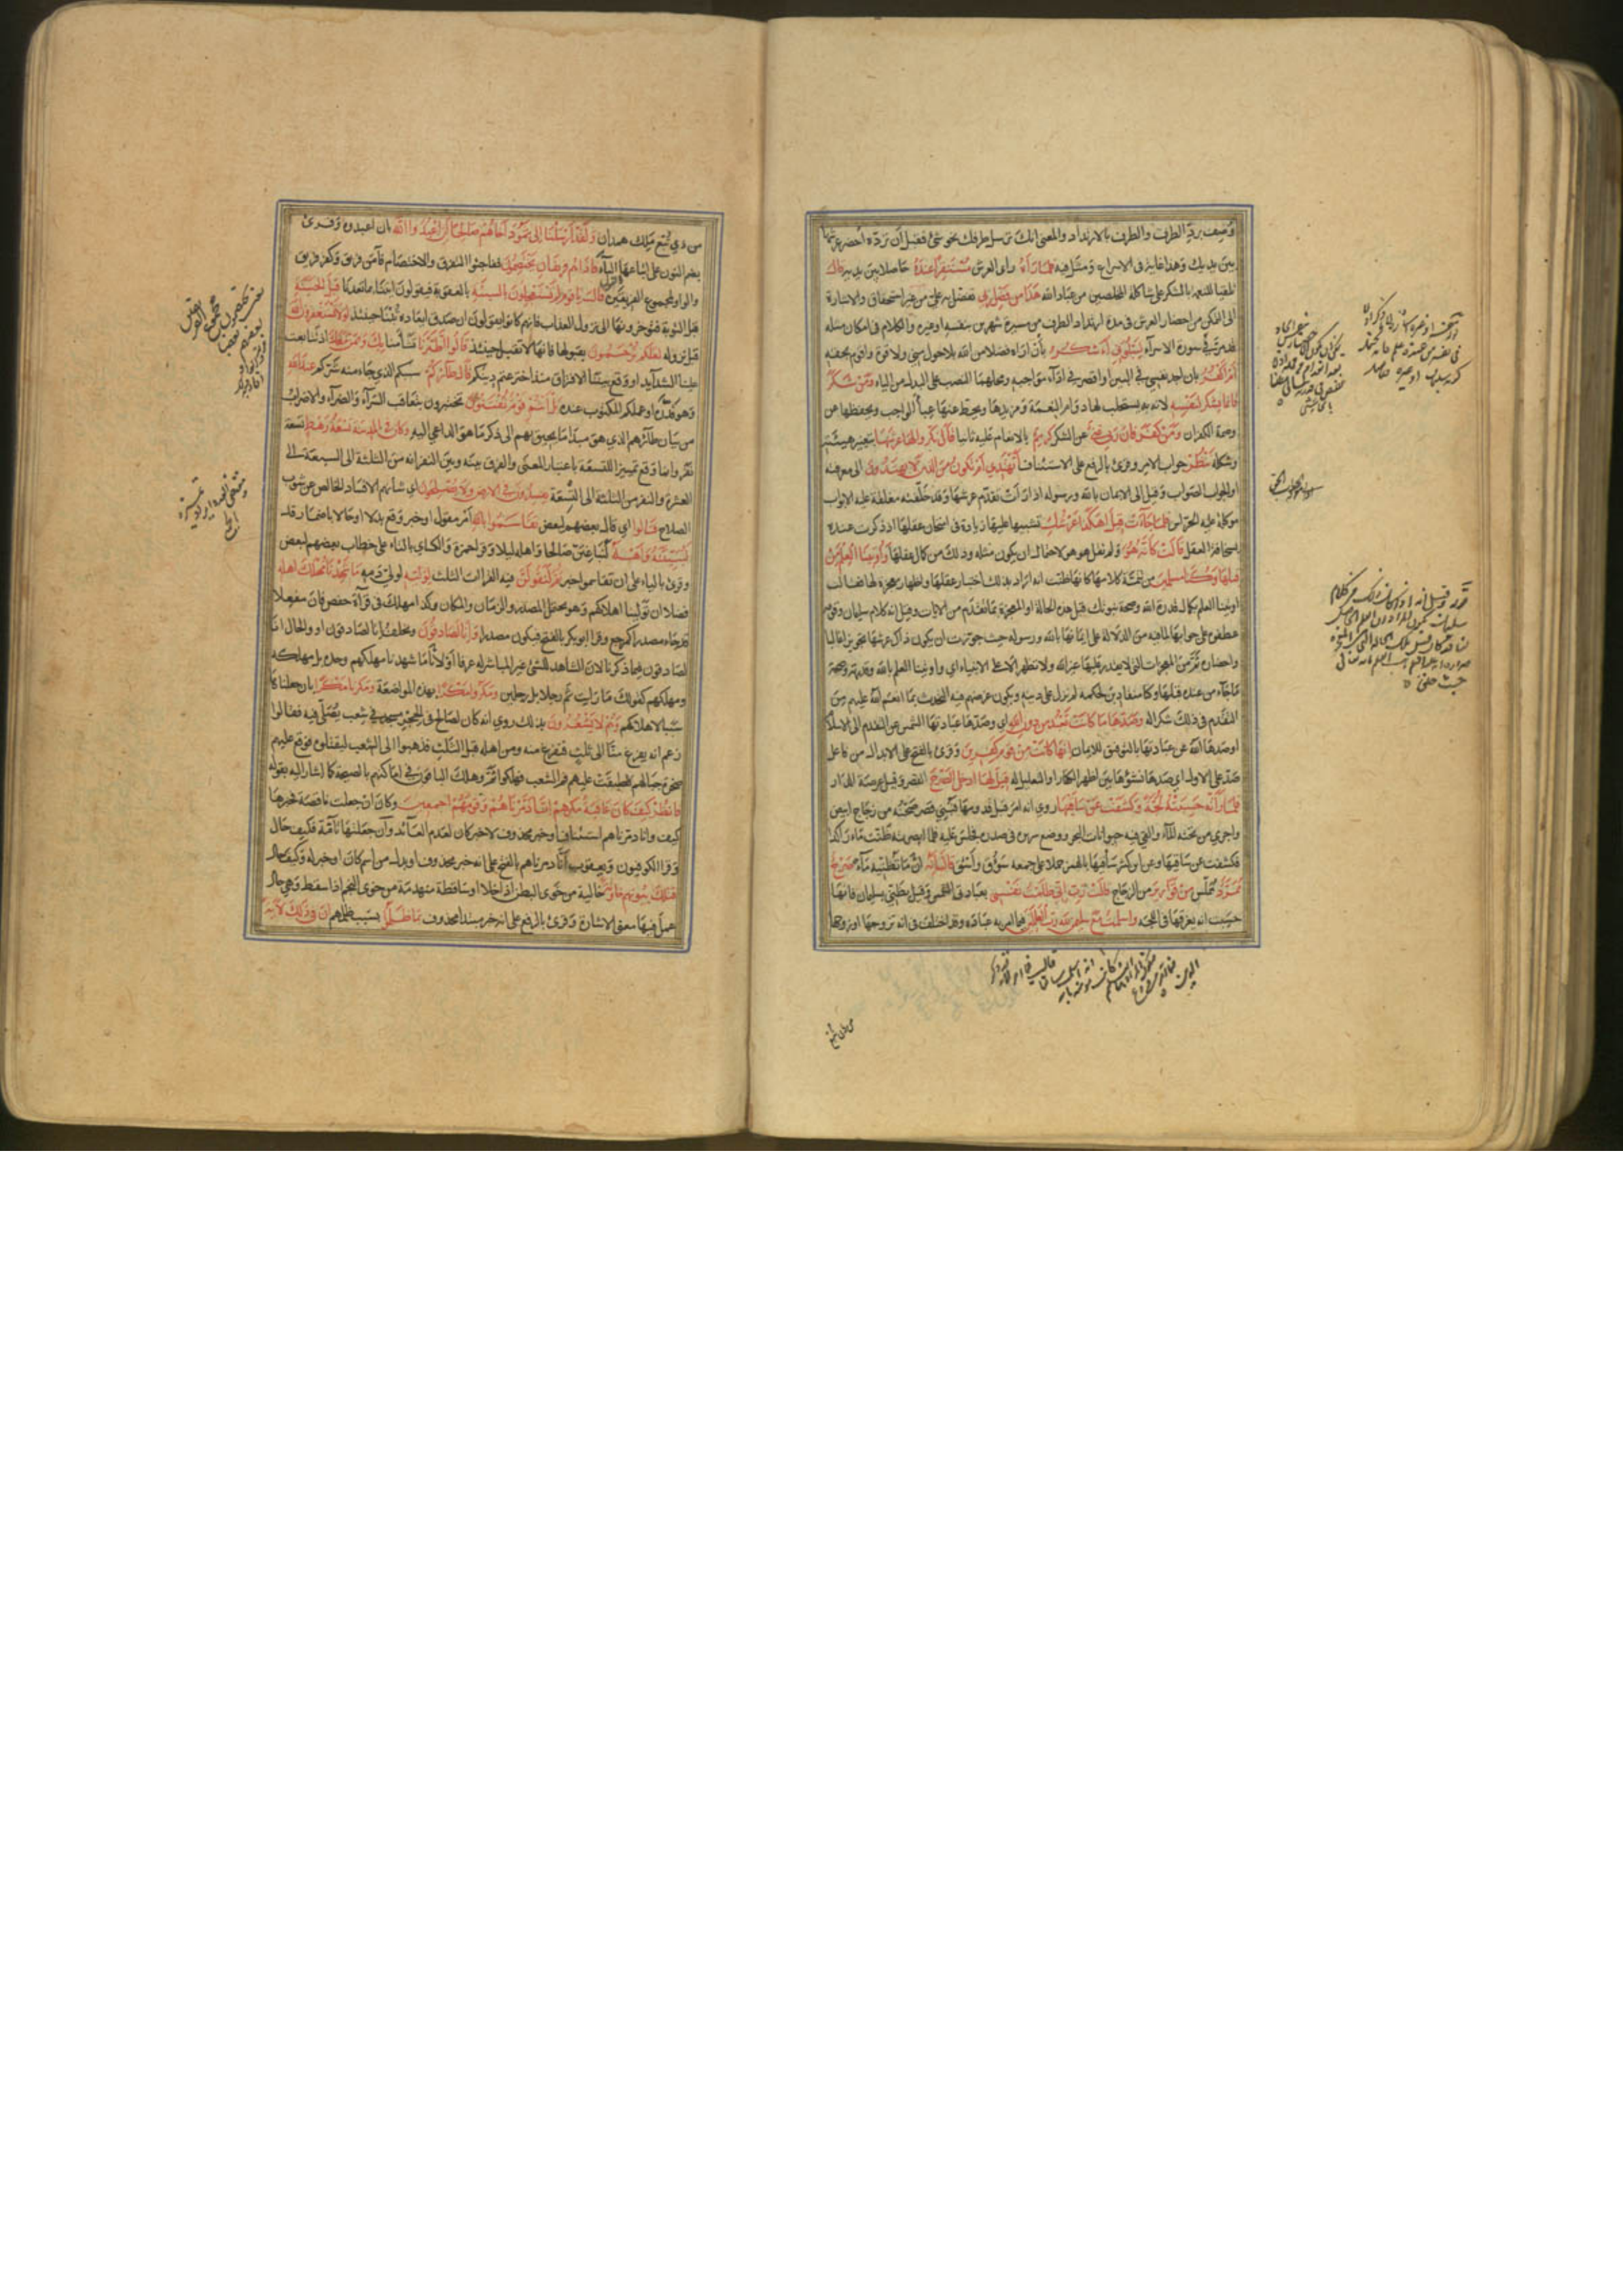 وُصِفَ بردّ الطرف والطرف بالارتداد والمعنى انك ترسل طرفك نحو شئ فقبل ان تردّه احضر عرشها
بين يديك وهذا غاية في الاسراع ومثل فيه فَلَمَّا رَآهُ راى العرش مُسْتَقِرًّا عِنْدَهُ حاصلا بين يديه قَالَ
تلقيا للنعمة بالشكر على شاكلة المخلصين من عباد الله هَذَا مِنْ فَضْلِ رَبِّي تفضل به عليّ من غير استحقاق والاشارة
الى التمكن من احضار العرش في مدة ارتداد الطرف من مسيرة شهرين بنفسه او غيره والكلام في امكان مثله
قد مرّ في سورة الاسرآء لِيَبْلُوَنِي ءَاَشْكُرُ بأن اراه فضلا من الله بلا حول مني ولا قوة واقوم بحقه
أَمْ أَكْفُرُ بان اجد نفسي في البين او اقصر في ادآء مواجبه ومحلهما النصب على البدل من الياء وَمَنْ شَكَرَ
فَإِنَّمَا يَشْكُرُ لِنَفْسِهِ لانه به يستجلب لها دوام النعمة ومزيدها ويحط عنها عبأ الواجب ويحفظها عن
وصمة الكفران وَمَنْ كَفَرَ فَإِنَّ رَبِّي غَنِيٌّ عن الشكر كَرِيمٌ بالانعام عليه ثانيا قَالَ نَكِّرُوا لَهَا عَرْشَهَا بتغيير هيئته
وشكله نَنْظُرْ جواب الامر وقرئ بالرفع على الاستئناف أَتَهْتَدِي أَمْ تَكُونُ مِنَ الَّذِينَ لَا يَهْتَدُونَ الى معرفته
او الجواب الصواب وقيل الى الايمان بالله ورسوله اذا رأت تقدّم عرشها وقد خلّفته مغلقة عليه الابواب
موكلة عليه الحراس فَلَمَّا جَآءَتْ قِيلَ أَهَكَذَا عَرْشُكِ تشبيها عليها زيادة في امتحان عقلها اذ ذكرت عنده
بسخافة العقل قَالَتْ كَأَنَّهُ هُوَ ولم تقل هو هو لاحتمال ان يكون مثله وذلك من كمال عقلها وَأُوتِينَا الْعِلْمَ مِنْ
قَبْلِهَا وَكُنَّا مُسْلِمِينَ من تتمة كلامها كانها ظنت انه اراد بذلك اختبار عقلها واظهار معجزة لها فقالت
اوتينا العلم بكمال قدرة الله وصحة نبوتك قبل هذه الحالة او المعجزة مما تقدم من الآيات وقيل انه كلام سليمان وقومه
عطفوه على جوابها لما فيه من الدلالة على ايمانها بالله ورسوله حيث جوزت ان يكون ذلك عرشها تجويزا غالبا
واحضاره ثمّ من المعجزات التي لا يقدر عليها غير الله ولا تظهر الا على الانبياء اي واوتينا العلم بالله وقدرته وصحة
ما جآء من عنده قبلها وكنا منقادين لحكمه لم نزل على دينه ويكون غرضهم فيه التحدث بما انعم الله عليهم من
التقدم في ذلك شكرا له وَصَدَّهَا مَا كَانَتْ تَعْبُدُ مِنْ دُونِ اللَّهِ اي وصدها عبادتها الشمس عن التقدم الى الاسلام
او صدها الله عن عبادتها بالتوفيق للايمان إِنَّهَا كَانَتْ مِنْ قَوْمٍ كَافِرِينَ وقرئ بالفتح على الابدال من فاعل
صدّ على الاول اي صدها نشوها بين اظهر الكفار او التعليل له قِيلَ لَهَا ادْخُلِي الصَّرْحَ القصر وقيل عرصة الدار
فَلَمَّا رَأَتْهُ حَسِبَتْهُ لُجَّةً وَكَشَفَتْ عَنْ سَاقَيْهَا روي انه امر قبل قدومها فبني قصر صحنه من زجاج ابيض
واجرى من تحته المآء والقي فيه حيوانات البحر ووضع سريره في صدره فجلس عليه فلما ابصرته ظنت مآء راكدا
فكشفت عن ساقيها وعن ابن كثير سأقيها بالهمز حملا على جمعه سؤق واسؤق قَالَ إِنَّهُ ان ما تظنينه مآء صَرْحٌ
مُمَرَّدٌ مملس مِنْ قَوَارِيرَ من الزجاج قَالَتْ رَبِّ إِنِّي ظَلَمْتُ نَفْسِي بعبادتي الشمس وقيل بظني بسليمان فانها
حسبت انه يغرقها في اللجة وَأَسْلَمْتُ مَعَ سُلَيْمَانَ لِلَّهِ رَبِّ الْعَالَمِينَ فيما امر به عباده وقد اختلف في انه تزوجها او زوجها
من ذي تبّع ملك همدان وَلَقَدْ أَرْسَلْنَا إِلَى ثَمُودَ أَخَاهُمْ صَالِحًا أَنِ اعْبُدُوا اللَّهَ بان اعبدوه وقرئ
بضم النون على اتباعها البآء فَإِذَا هُمْ فَرِيقَانِ يَخْتَصِمُونَ ففاجئوا التفرق والاختصام فآمن فريق وكفر فريق
والواو لمجموع الفريقين قَالَ يَا قَوْمِ لِمَ تَسْتَعْجِلُونَ بِالسَّيِّئَةِ بالعقوبة فيقولون ائتنا بما تعدنا قَبْلَ الْحَسَنَةِ
قبل التوبة فتؤخرونها الى نزول العذاب فانهم كانوا يقولون ان صدق ايعاده تبنا حينئذ لَوْلَا تَسْتَغْفِرُونَ اللَّهَ
قبل نزوله لَعَلَّكُمْ تُرْحَمُونَ بقبولها فانها لا تقبل حينئذ قَالُوا اطَّيَّرْنَا تشأمنا بِكَ وَبِمَنْ مَعَكَ اذ تتابعت
علينا الشدآيد او وقع بيننا الافتراق منذ اخترعتم دينكم قَالَ طَائِرُكُمْ سببكم الذي جآء منه شركم عِنْدَ اللَّهِ
وهو قدره او عملكم المكتوب عنده بَلْ أَنْتُمْ قَوْمٌ تُفْتَنُونَ تختبرون بتعاقب السرآء والضرآء والاضراب
من بيان طائرهم الذي هو مبدأ ما يحيق بهم الى ذكر ما هو الداعي اليه وَكَانَ فِي الْمَدِينَةِ تِسْعَةُ رَهْطٍ تسعة
نفر وانما وقع تمييزا للتسعة باعتبار المعنى والفرق بينه وبين النفر انه من الثلثة الى السبعة الى
العشرة والنفر من الثلثة الى التسعة يُفْسِدُونَ فِي الْأَرْضِ وَلَا يُصْلِحُونَ اي شانهم الافساد الخالص عن شوب
الصلاح قَالُوا اي قال بعضهم لبعض تَقَاسَمُوا بِاللَّهِ امر مقول او خبر وقع بدلا او حالا باضمار قد
لَنُبَيِّتَنَّهُ وَأَهْلَهُ لنباغتن صالحا واهله ليلا وقرا حمزة والكسآي بالتاء على خطاب بعضهم لبعض
وقرئ بالياء على ان تقاسموا خبر ثُمَّ لَنَقُولَنَّ فيه القراآت الثلث لِوَلِيِّهِ لولي دمه مَا شَهِدْنَا مَهْلِكَ أَهْلِهِ
فضلا ان تولينا اهلاكهم وهو يحتمل المصدر والزمان والمكان وكذا مهلك في قرآة حفص فان مفعلا
قد جاء مصدرا كمرجع وقرا ابو بكر بالفتح فيكون مصدرا وَإِنَّا لَصَادِقُونَ ونحلف انا لصادقون او والحال انا
لصادقون فيما ذكرنا لان الشاهد للشئ غير المباشر له عرفا او لأنا ما شهدنا مهلكهم وحده بل مهلكه
ومهلكهم كقولك ما رايت ثم رجلا بل رجلين وَمَكَرُوا مَكْرًا بهذه المواضعة وَمَكَرْنَا مَكْرًا بان جعلناها
سببا لاهلاكهم وَهُمْ لَا يَشْعُرُونَ بذلك روي انه كان لصالح في الحجر مسجد في شعب يصلي فيه فقالوا
زعم انه يفرغ منا الى ثلث فنفرغ منه ومن اهله قبل الثلث فذهبوا الى الشعب ليقتلوه فوقع عليهم
صخرة حيالهم فطبقت عليهم فم الشعب فهلكوا ثمة وهلك الباقون في اماكنهم بالصيحة كما اشار اليه بقوله
فَانْظُرْ كَيْفَ كَانَ عَاقِبَةُ مَكْرِهِمْ إِنَّا دَمَّرْنَاهُمْ وَقَوْمَهُمْ أَجْمَعِينَ وكان ان جعلت ناقصة فخبرها
كيف وانا دمرناهم استئناف او خبر محذوف لا خبر كان لعدم العآئد وان جعلتها تآمّة فكيف حال
وقرا الكوفيون ويعقوب أنّا دمرناهم بالفتح على انه خبر محذوف او بدل من اسم كان او خبر له وكيف حال
فَتِلْكَ بُيُوتُهُمْ خَاوِيَةً خالية من خوى البطن اذا خلا او ساقطة منهدمة من خوى النجم اذا سقط وهي حال
عمل فيها معنى الاشارة وقرئ بالرفع على انه خبر مبتدا محذوف بِمَا ظَلَمُوا بسبب ظلمهم إِنَّ فِي ذَلِكَ لَآيَةً